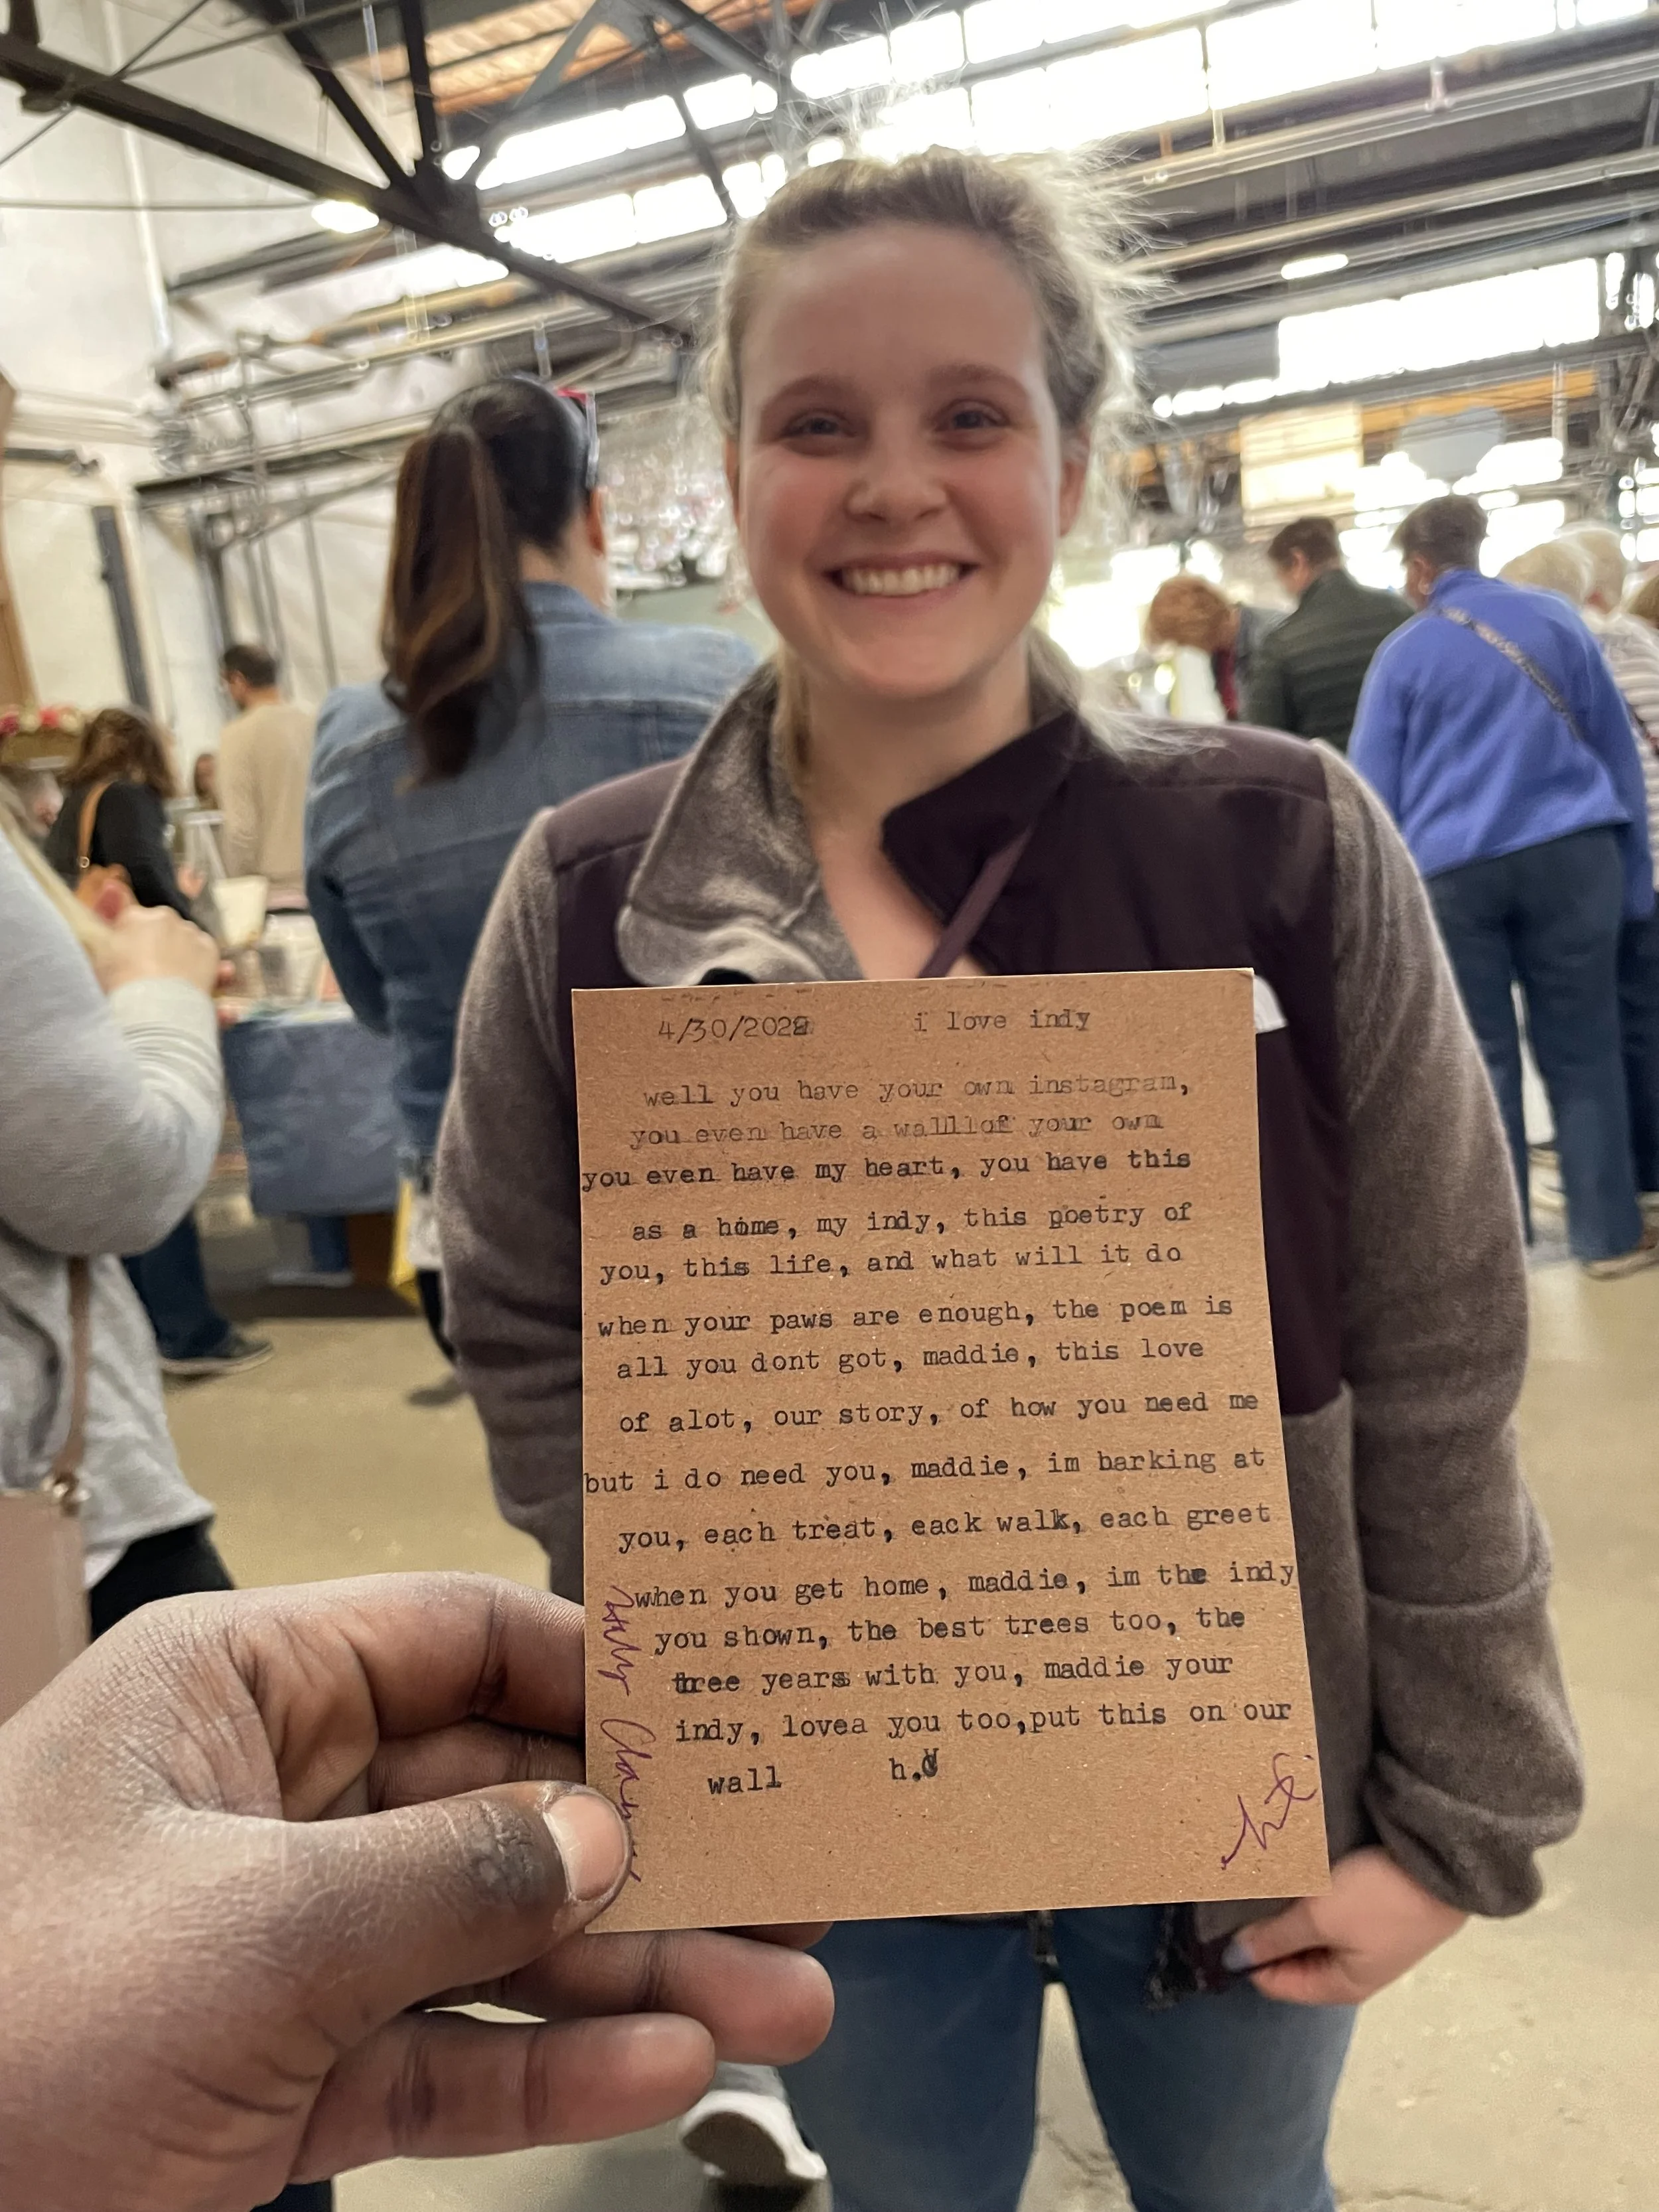 4/30/2022 i love indy
well you have your own instagram,
you even have a walllof your own
you even have my heart, you have this
as a home, my indy, this poetry of
you, this life, and what will it do
when your paws are enough, the poem is
all you dont got, maddie, this love
of alot, our story, of how you need me
but i do need you, maddie, im barking at
you, each treat, eack walk, each greet
when you get home, maddie, im the indy
you shown, the best trees too, the
three years with you, maddie your
indy, lovea you too,put this on our
wall h.